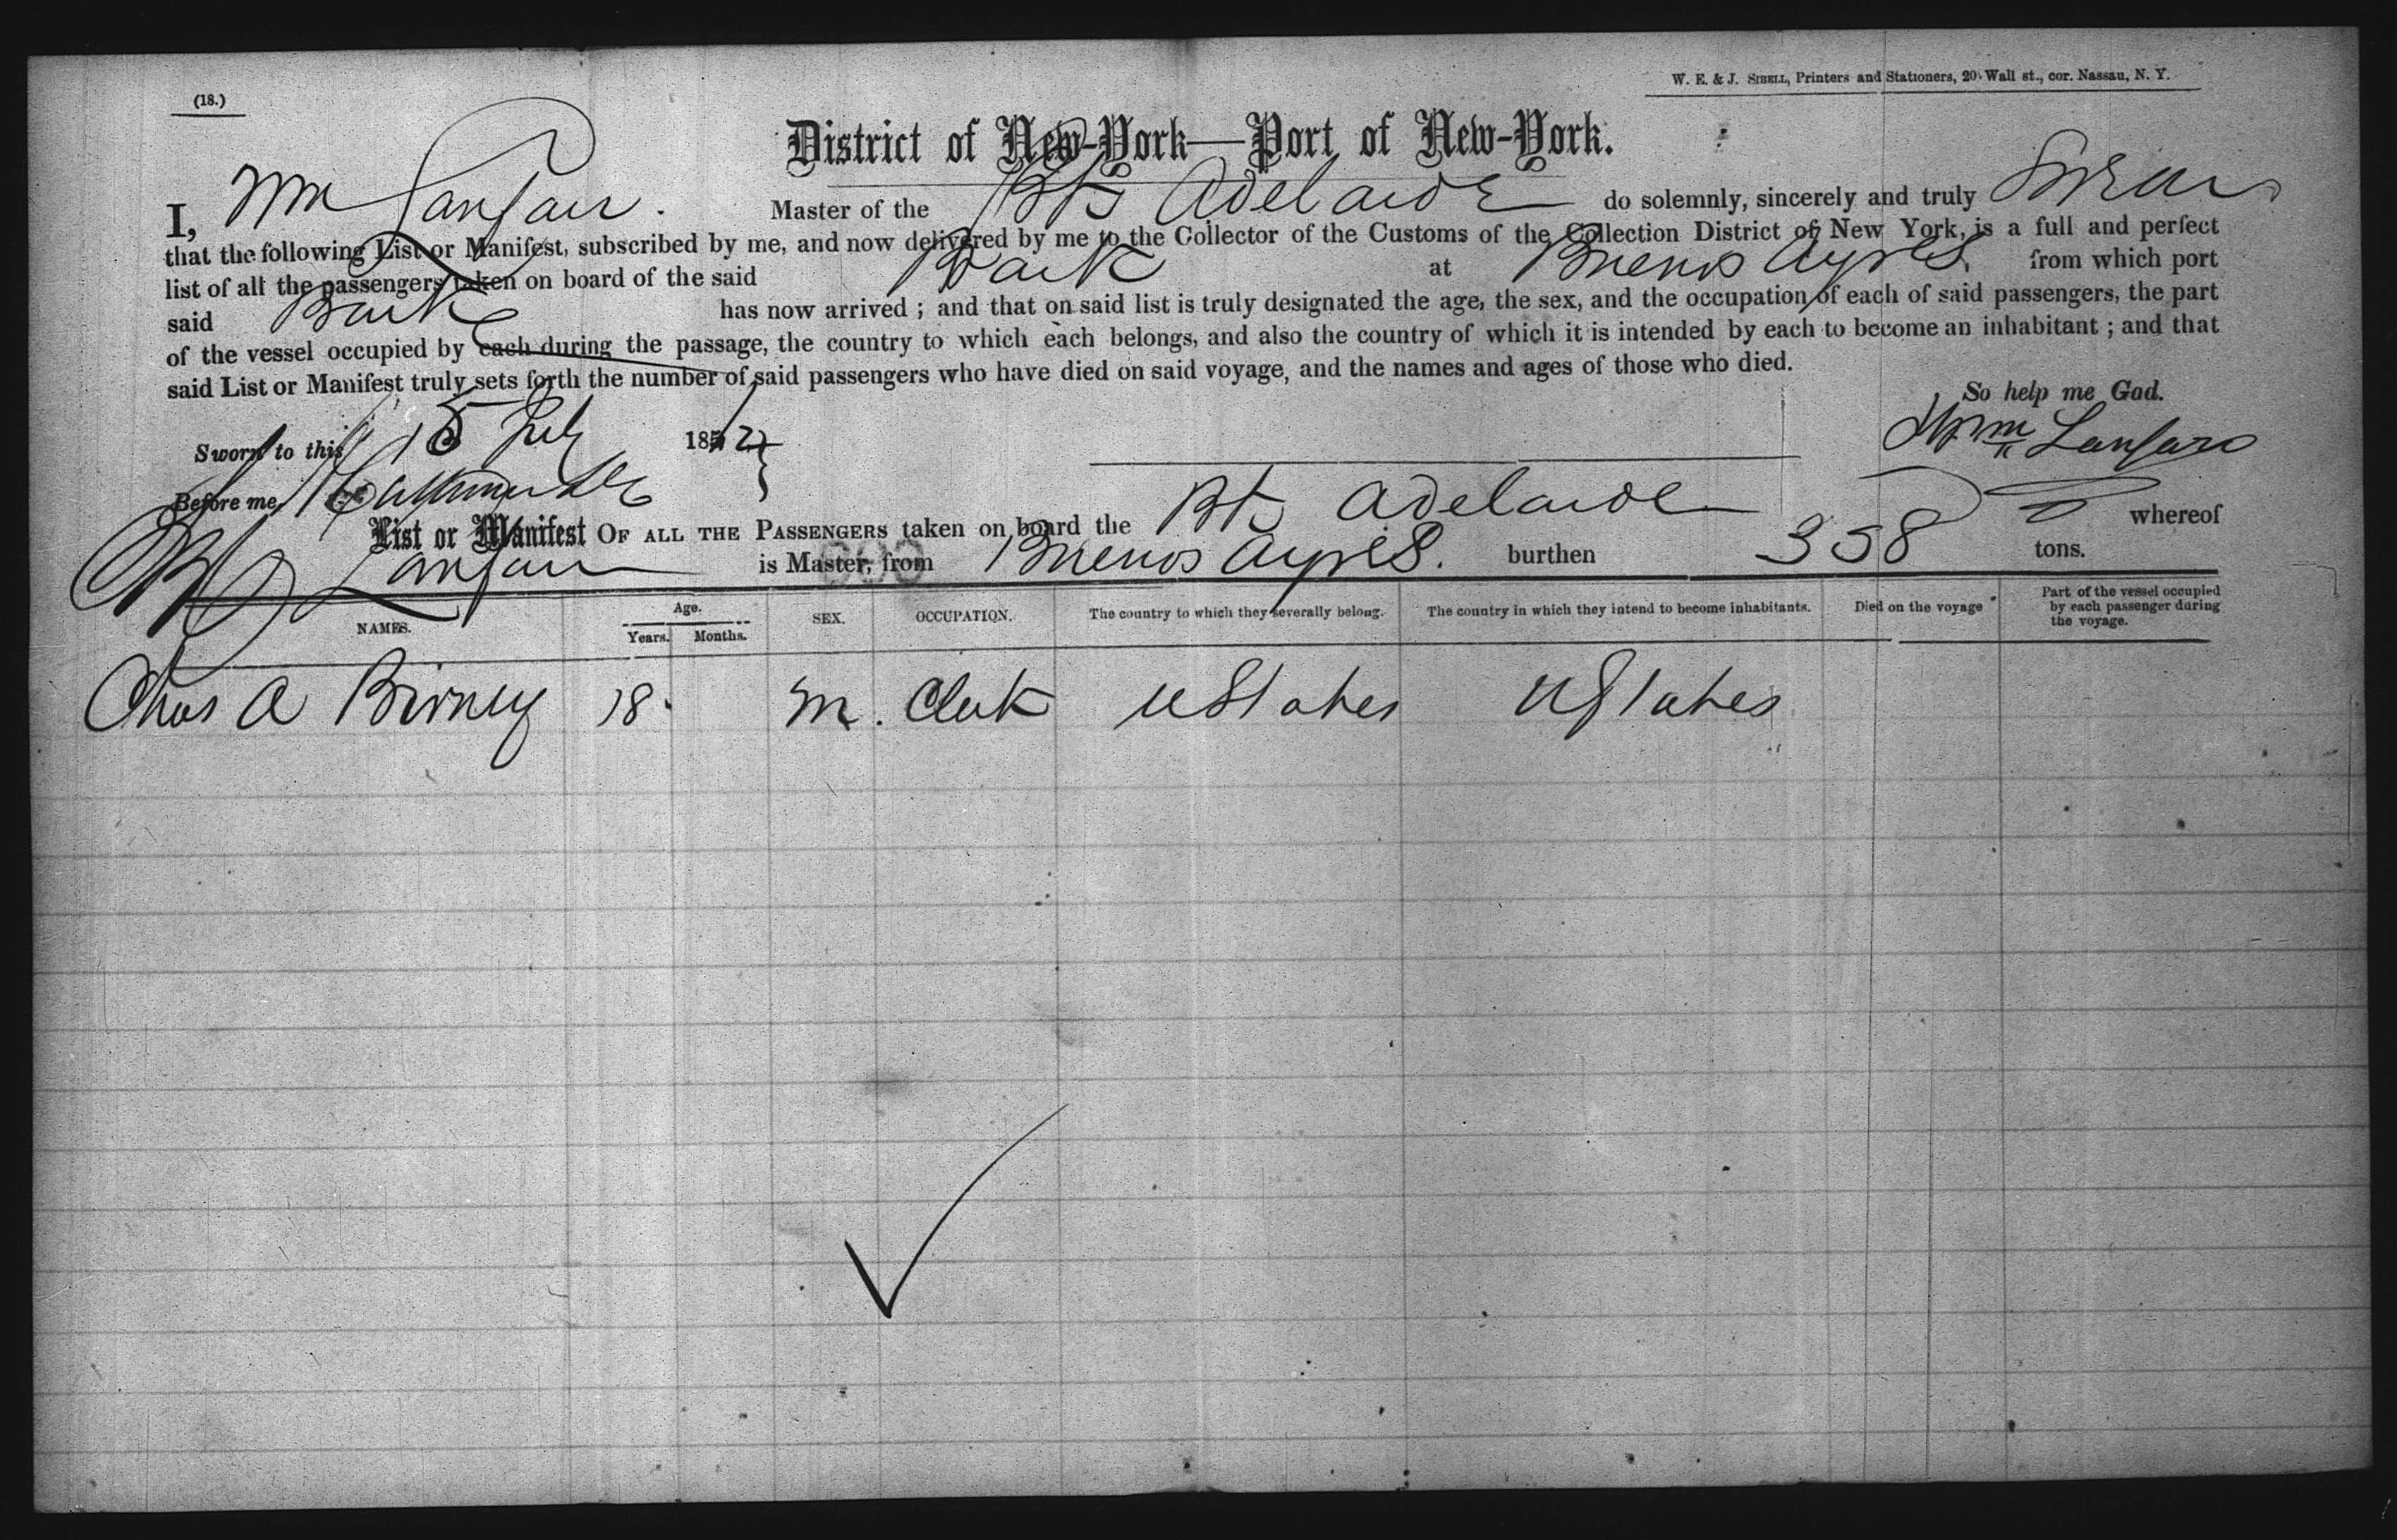 (18.)
W. E. & J. SIBELL, Printers and Stationers, 20 Wall st., cor. Nassau, N. Y.
District of New-York—Port of New-York.
I, Wm Lanfair. Master of the Bk Adelaide do solemnly, sincerely and truly Swear
that the following List or Manifest, subscribed by me, and now delivered by me to the Collector of the Customs of the Collection District of New York, is a full and perfect
list of all the passengers taken on board of the said Bark at Buenos Ayres, from which port
said Bark has now arrived ; and that on said list is truly designated the age, the sex, and the occupation of each of said passengers, the part
of the vessel occupied by each during the passage, the country to which each belongs, and also the country of which it is intended by each to become an inhabitant ; and that
said List or Manifest truly sets forth the number of said passengers who have died on said voyage, and the names and ages of those who died.
So help me God.
Sworn to this 15 July 185
Wm Lanfare
Before me,
List or Manifest OF ALL THE PASSENGERS taken on board the Bk Adelaide whereof
Lanfair is Master, from Buenos Ayres. burthen 358 tons.
NAMES. Age. Years. Months. SEX. OCCUPATION. The country to which they severally belong. The country in which they intend to become inhabitants. Died on the voyage Part of the vessel occupied by each passenger during the voyage.
Chas A Birney 18 M. Clerk U States U States